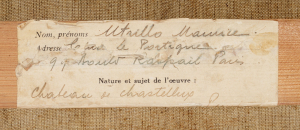 Nom, prénoms Utrillo Maurice.
Adresse le Portique
99 Boult Raspail Paris
Nature et sujet de l'œuvre :
Chateau de Chastellux